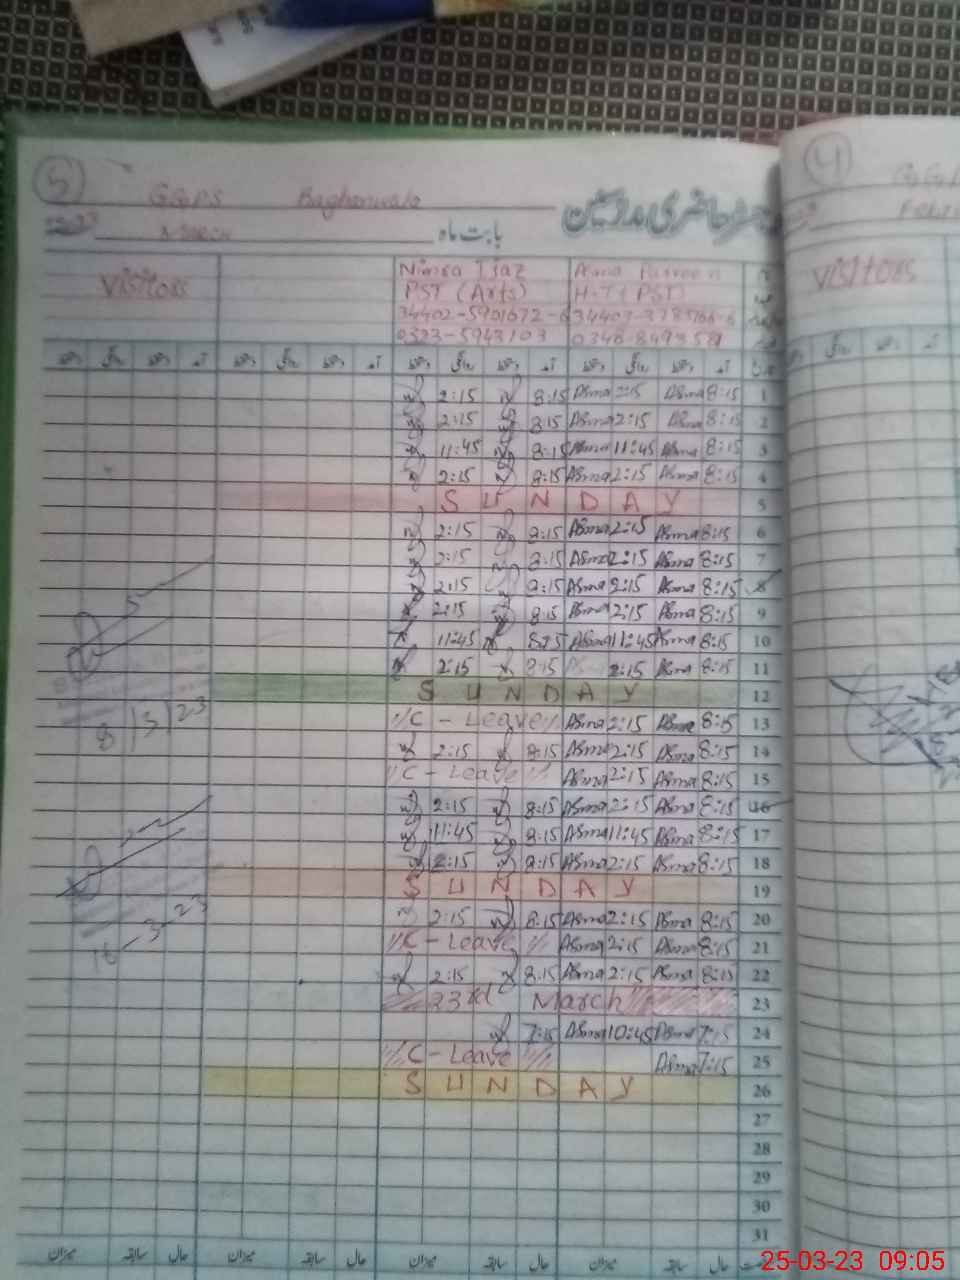 5
GGPS Bagharwala
حاضری مدرسین
March بابت ماہ
Visitors
Nimra Ijaz
PST (Arts)
0323-5943103
Asma Parveen
H.T (PST)
2:15 8:15 Asma 2:15 Asma 8:15 1
2:15 8:15 Asma 2:15 Asma 8:15 2
11:45 8:15 Asma 11:45 Asma 8:15 3
2:15 8:15 Asma 2:15 Asma 8:15 4
SUNDAY 5
2:15 8:15 Asma 2:15 Asma 8:15 6
2:15 8:15 Asma 2:15 Asma 8:15 7
2:15 8:15 Asma 2:15 Asma 8:15 8
2:15 8:15 Asma 2:15 Asma 8:15 9
11:45 8:15 Asma 11:45 Asma 8:15 10
2:15 8:15 2:15 Asma 8:15 11
SUNDAY 12
C-Leave Asma 2:15 Asma 8:15 13
2:15 8:15 Asma 2:15 Asma 8:15 14
C-Leave Asma 2:15 Asma 8:15 15
2:15 8:15 Asma 2:15 Asma 8:15 16
11:45 8:15 Asma 11:45 Asma 8:15 17
2:15 8:15 Asma 2:15 Asma 8:15 18
SUNDAY 19
2:15 8:15 Asma 2:15 Asma 8:15 20
C-Leave Asma 2:15 Asma 8:15 21
2:15 8:15 Asma 2:15 Asma 8:15 22
23rd March 23
7:15 Asma 10:45 Asma 7:15 24
C-Leave Asma 7:15 25
SUNDAY 26
27
28
29
30
31
میزان سابقہ حال میزان سابقہ حال میزان سابقہ حال میزان سابقہ حال
8/3/23
16-3-23
4
Visitors
25-03-23 09:05